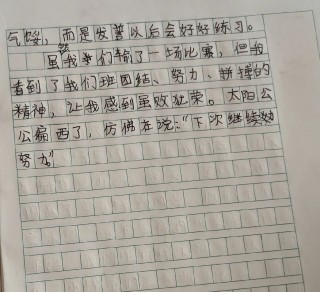 气馁，而是发誓以后会好好练习。
虽然我们输了一场比赛，但我
看到了我们班团结、努力、拼搏的
精神，让我感到虽败犹荣。太阳公
公偏西了，仿佛在说：“下次继续
努力”